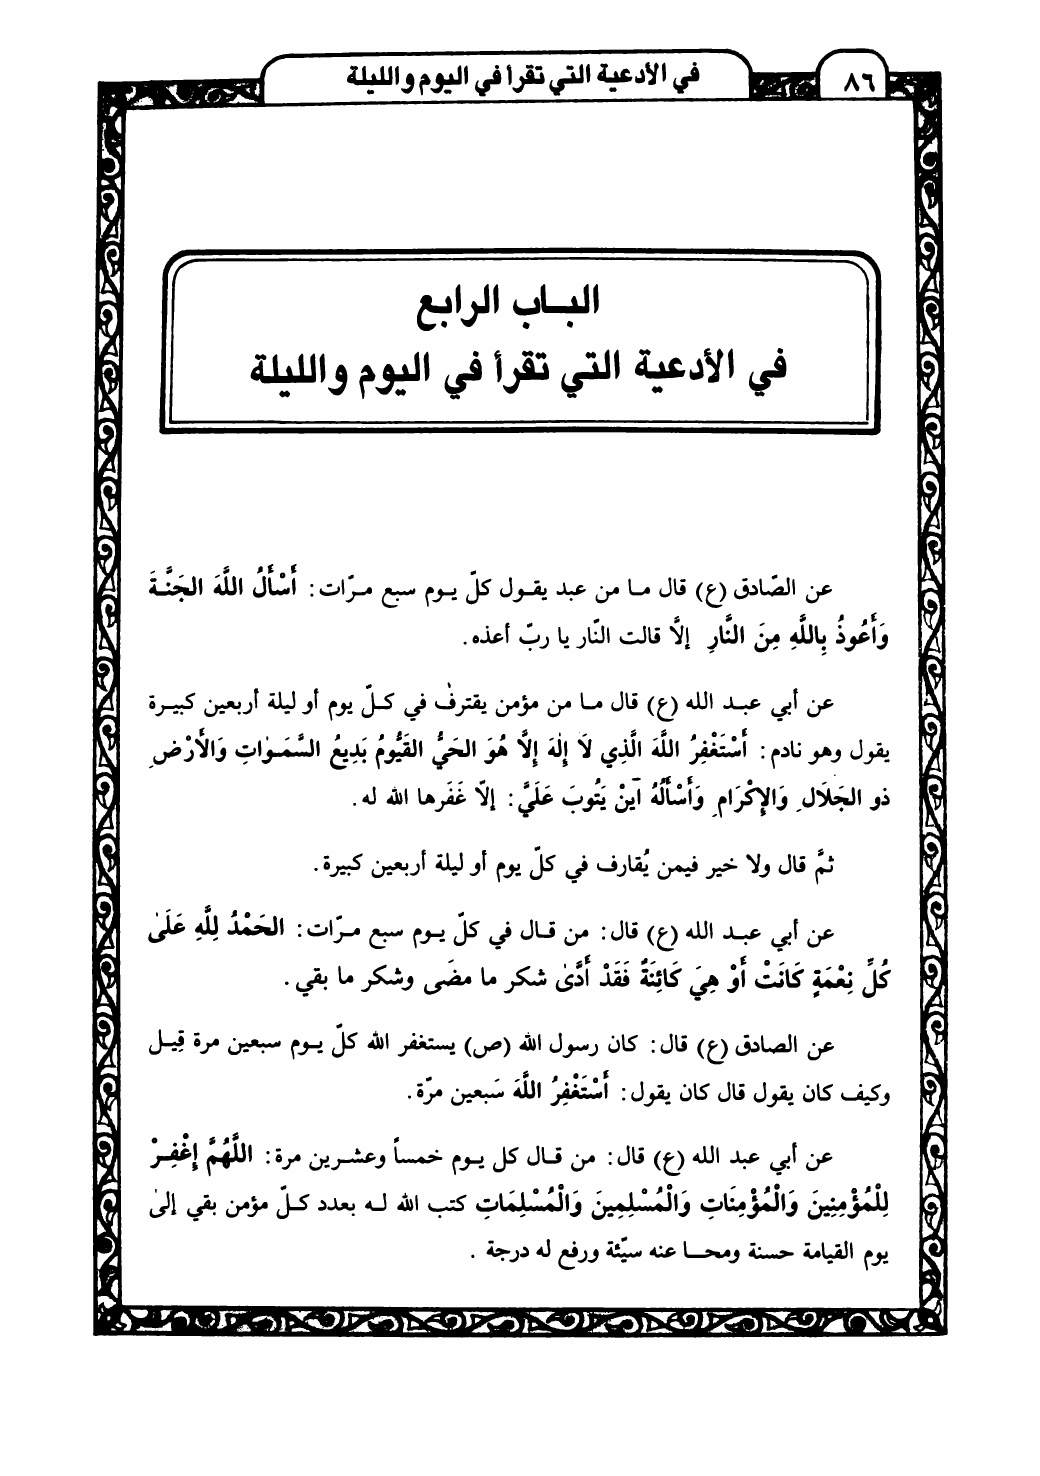 ٨٦
في الأدعية التي تقرأ في اليوم والليلة
البـاب الرابع
في الأدعية التي تقرأ في اليوم والليلة
عن الصّادق (ع) قال مـا من عبد يقـول كلّ يـوم سبع مـرّات: أَسْأَلُ اللَّهَ الجَنَّـةَ
وَأَعُوذُ بِاللَّهِ مِنَ النَّارِ إلاَّ قالت النّار يا ربّ أعذه.
عن أبي عبـد الله (ع) قال مـا من مؤمن يقترفُ في كـلّ يوم أو ليلة أربعين كبيـرة
يقول وهو نادم: أَسْتَغْفِرُ اللَّهَ الَّذِي لَا إِلٰهَ إِلَّا هُوَ الحَيُّ القَيُّومُ بَدِيعُ السَّمَـوٰاتِ وَالْأَرْضِ
ذو الجَلَالِ وَالإِكْرَامِ وَأَسْأَلُهُ آينْ يَتُوبَ عَلَيَّ: إلاّ غَفَرها الله له.
ثمَّ قال ولا خير فيمن يُقارف في كلّ يوم أو ليلة أربعين كبيرة.
عن أبي عبـد الله (ع) قال: من قـال في كلّ يـوم سبع مـرّات: الحَمْدُ لِلَّهِ عَلَىٰ
كُلِّ نِعْمَةٍ كَانَتْ أَوْ هِيَ كَائِنَةٌ فَقَدْ أَدَّىٰ شكر ما مضَى وشكر ما بقي.
عن الصادق (ع) قال: كان رسول الله (ص) يستغفر الله كلّ يـوم سبعين مرة قِيـل
وكيف كان يقول قال كان يقول: أَسْتَغْفِرُ اللَّهَ سَبعين مرّة.
عن أبي عبد الله (ع) قال: من قـال كل يـوم خمساً وعشـرين مرة: اللَّهُمَّ إغْفِـرْ
لِلْمُؤْمِنِينَ وَالْمُؤْمِنَاتِ وَالْمُسْلِمِينَ وَالْمُسْلِمَاتِ كتب الله لـه بعدد كـلّ مؤمن بقي إلىٰ
يوم القيامة حسنة ومحـا عنه سيّئة ورفع له درجة .